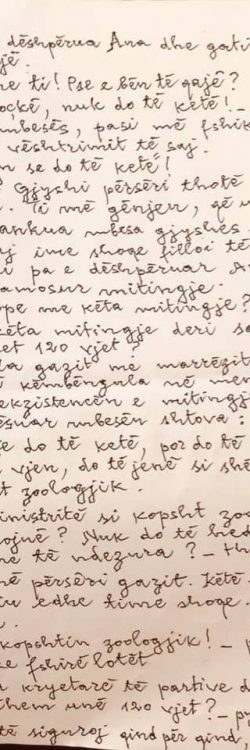 dëshpërua Ana dhe gati
jë.
re ti! Pse e bën të qajë?
ockë, nuk do të ketë! –
mbesës, pasi më fshik
vështrimit të saj.
n se do të ketë!
? Gjyshi përsëri thotë
. Ti më gënjen, që u
ankua mbesa gjyshes.
aj ime shoqe filloi të
u pa e dëshpëruar A
amosur mitingje.
pe me këta mitingje?
këta mitingje deri sa
et 120 vjet?
la gazit me marrëzit
ë këmbëngula në me
ekzistencën e mitingj
ësuar mbesën shtova:
e do të ketë, por do të
vjen, do të jenë si shë
t zoologjik.
inistritë si kopsht zoo
ojnë? Nuk do të hed
me të ndezura? – Hy
në përsëri gazit. Këtë
iu edhe time shoqe.
kopshtin zoologjik! – p
e fshirë lotët
kryetarë të partive d
hem unë 120 vjet? – py
të siguroj qind për qind